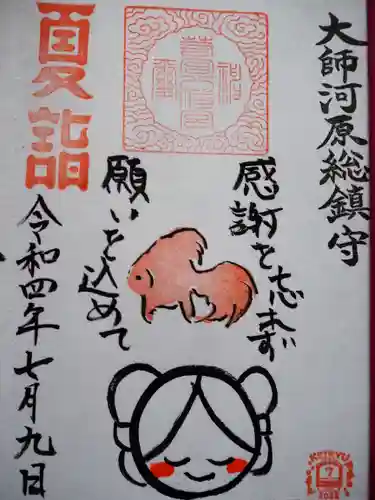 大師河原総鎮守
感謝を忘れず
願いを込めて
夏詣
令和四年七月九日
7
2022